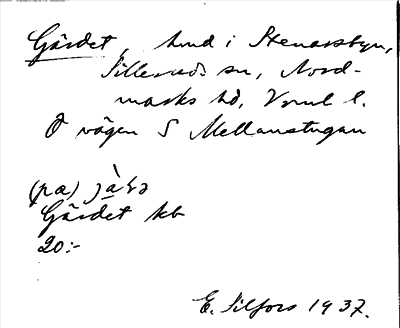 Gärdet, hmd i Stenarsbyn,
Silleruds sn, Nord-
marks hd, Vrml l.
Ö vägen S Mellanstugan
(pa)
Gärdet kb
20:-
E. Silfors 1937.